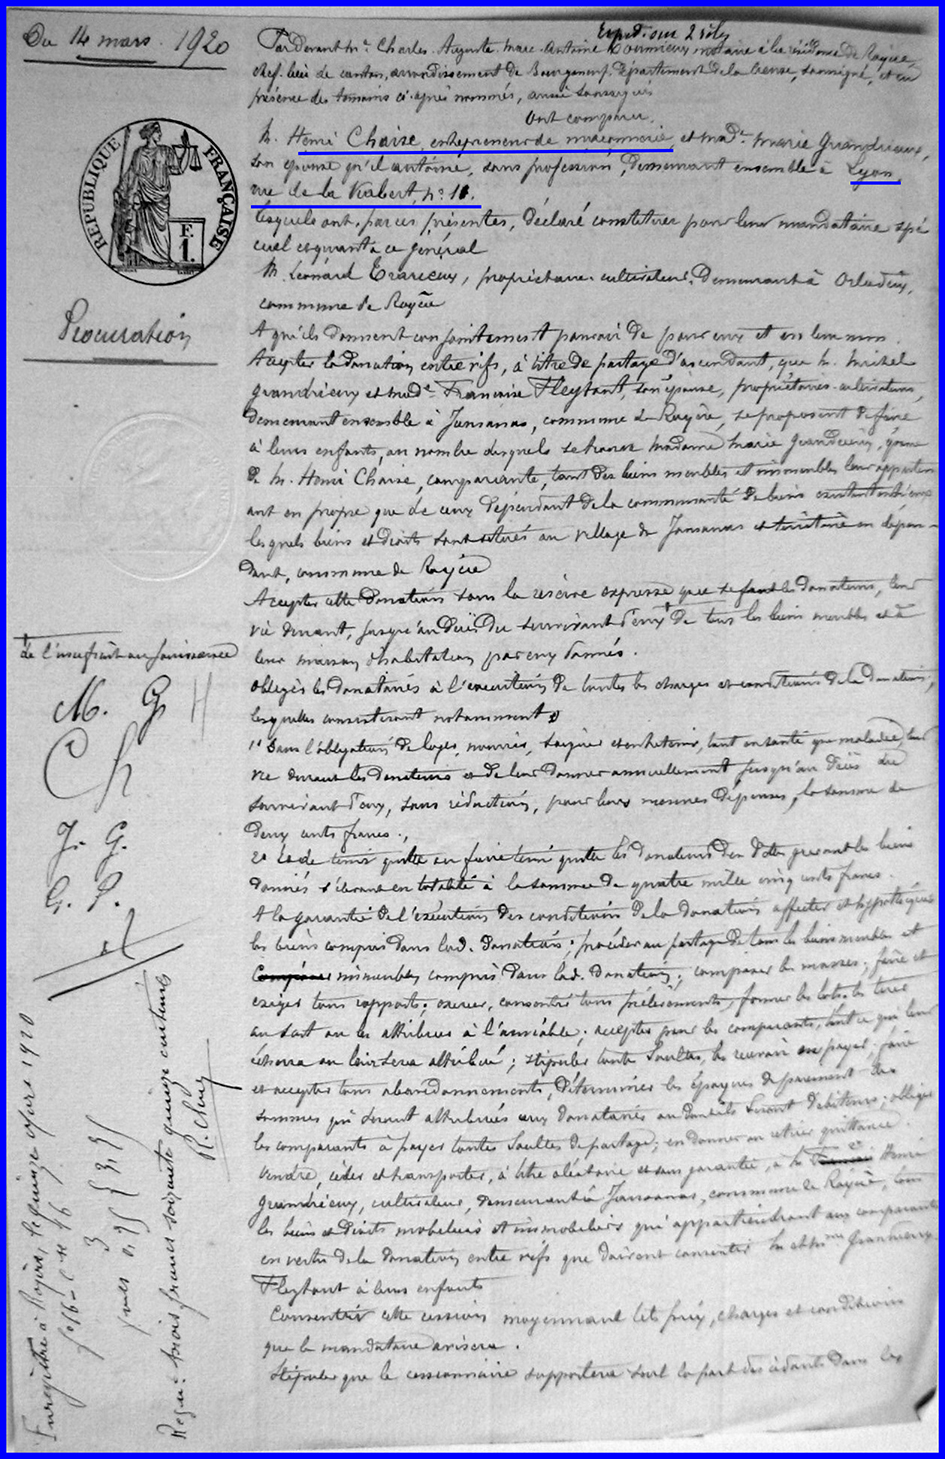 Du 14 mars 1920
Par devant Me Charles Auguste Marc Antoine notaire à la résidence de Royère
chef lieu de canton, arrondissement de Bourganeuf, département de la Creuse, soussigné, et en
présence des témoins ci-après nommés, aussi soussignés
Ont comparu.
M. Henri Chaise, entrepreneur de maçonnerie et Made Marie Grandrieux,
son épouse qu'il autorise, sans profession, demeurant ensemble à Lyon
rue de la No 16.
lesquels ont, par ces présentes, déclaré constituer pour leur mandataire spé
cial et quant à ce général
M. Léonard propriétaire cultivateur, demeurant à
commune de Royère
RÉPUBLIQUE FRANÇAISE
F.
1.
Procuration
A qui ils donnent conjointement pouvoir de pour eux et en leur nom.
Accepter la donation entre vifs, à titre de partage d'ascendant, que M. Michel
Grandrieux et Made Françoise Fleytout, son épouse, propriétaires cultivateurs,
demeurant ensemble à Jansanas, commune de Royère, se proposent de faire
à leurs enfants, au nombre desquels se trouve Madame Marie Grandrieux, épouse
de M. Henri Chaise, comparante, tant des biens meubles et immeubles leur apparten
ant en propre que de ceux dépendant de la communauté de biens existant entre eux
lesquels biens et droits sont situés au village de Jansanas et territoire en dépen-
dant, commune de Royère
Accepter cette donation sous la réserve expresse que se font les donateurs, leur
vie durant, jusqu'au décès du survivant d'eux de tous les biens meubles et à
leur maison d'habitation par eux donnés.
de l'usufruit ou jouissance
Obliger les donataires à l'exécution de toutes les charges et conditions de la donation,
lesquelles consisteront notamment
1° Dans l'obligation de loger, nourrir, soigner et entretenir, tant en santé que maladie, leur
vie durant les donateurs et de leur donner annuellement jusqu'au décès du
survivant d'eux, sans réduction, pour leurs menues dépenses, la somme de
deux cents francs.
2° De tenir quitte ou faire tenir quitte les donateurs d'un dette grevant les biens
donnés s'élevant en totalité à la somme de quatre mille cinq cents francs.
A la garantie de l'exécution des conditions de la donation affecter et hypothéquer
les biens compris dans lad. donation; procéder au partage de tous les biens meubles et
immeubles compris dans lad. donation; composer les masses; faire et
exiger tous rapports; exercer, consentir tous prélèvements, former les lots, les tirer
au sort ou les attribuer à l'amiable; accepter pour les comparants, tout ce qui leur
échoira ou leur sera attribué; stipuler toutes soultes, les recevoir ou payer; faire
et accepter tous abandonnements, déterminer les époques de paiement des
sommes qui seront attribuées aux donataires ou dont ils seront débiteurs; obliger
les comparants à payer toutes soultes de partage; en donner ou retirer quittance.
Vendre, céder et transporter, à titre aléatoire et sans garantie, à M. Henri
Grandrieux, cultivateur, demeurant à Jansanas, commune de Royère, tous
les biens et droits mobiliers et immobiliers qui appartiendront aux comparants
en vertu de la donation entre vifs que doivent consentir M. et Mme Grandrieux
Fleytout à leurs enfants
Consentir cette cession moyennant tels prix, charges et conditions
que le mandataire avisera.
Stipuler que le cessionnaire supportera seul la part des cédants dans les
M. G. H
Ch
J. G.
G. P.
Enregistré à Royère, le quinze mars 1920
Reçu: trois francs soixante quinze centimes